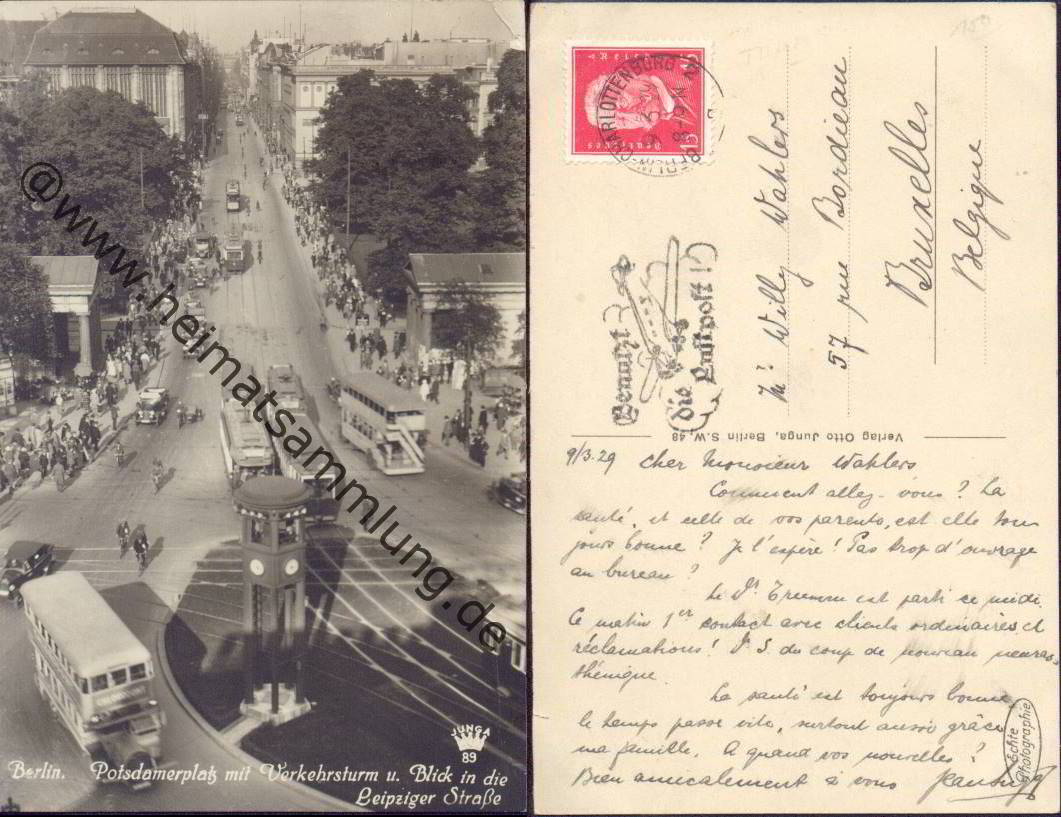 @www.heimatsammlung.de
JUNGA
89
Berlin. Potsdamerplatz mit Verkehrsturm u. Blick in die
Leipziger Straße
150
Deutsches Reich
15
BERLIN-CHARLOTTENBURG 2
Benutzt
die Luftpost!
Mr Willy Wahlers
57 rue Bordieau
Bruxelles
Belgique
Verlag Otto Junga, Berlin S.W. 48
9/3.29 Cher Monsieur Wahlers
Comment allez-vous? La
santé, et celle de vos parents, est elle tou-
jours bonne? Je l'espère! Pas trop d'ouvrage
au bureau?
Le Dr est parti ce midi.
Ce matin 1er contact avec clients ordinaires et
réclamations! Dr S du coup de nouveau neuras-
thénique.
La santé est toujours bonne
le temps passe vite, surtout aussi grâce
ma famille. A quand vos nouvelles?
Bien amicalement à vous
Echte
Photographie